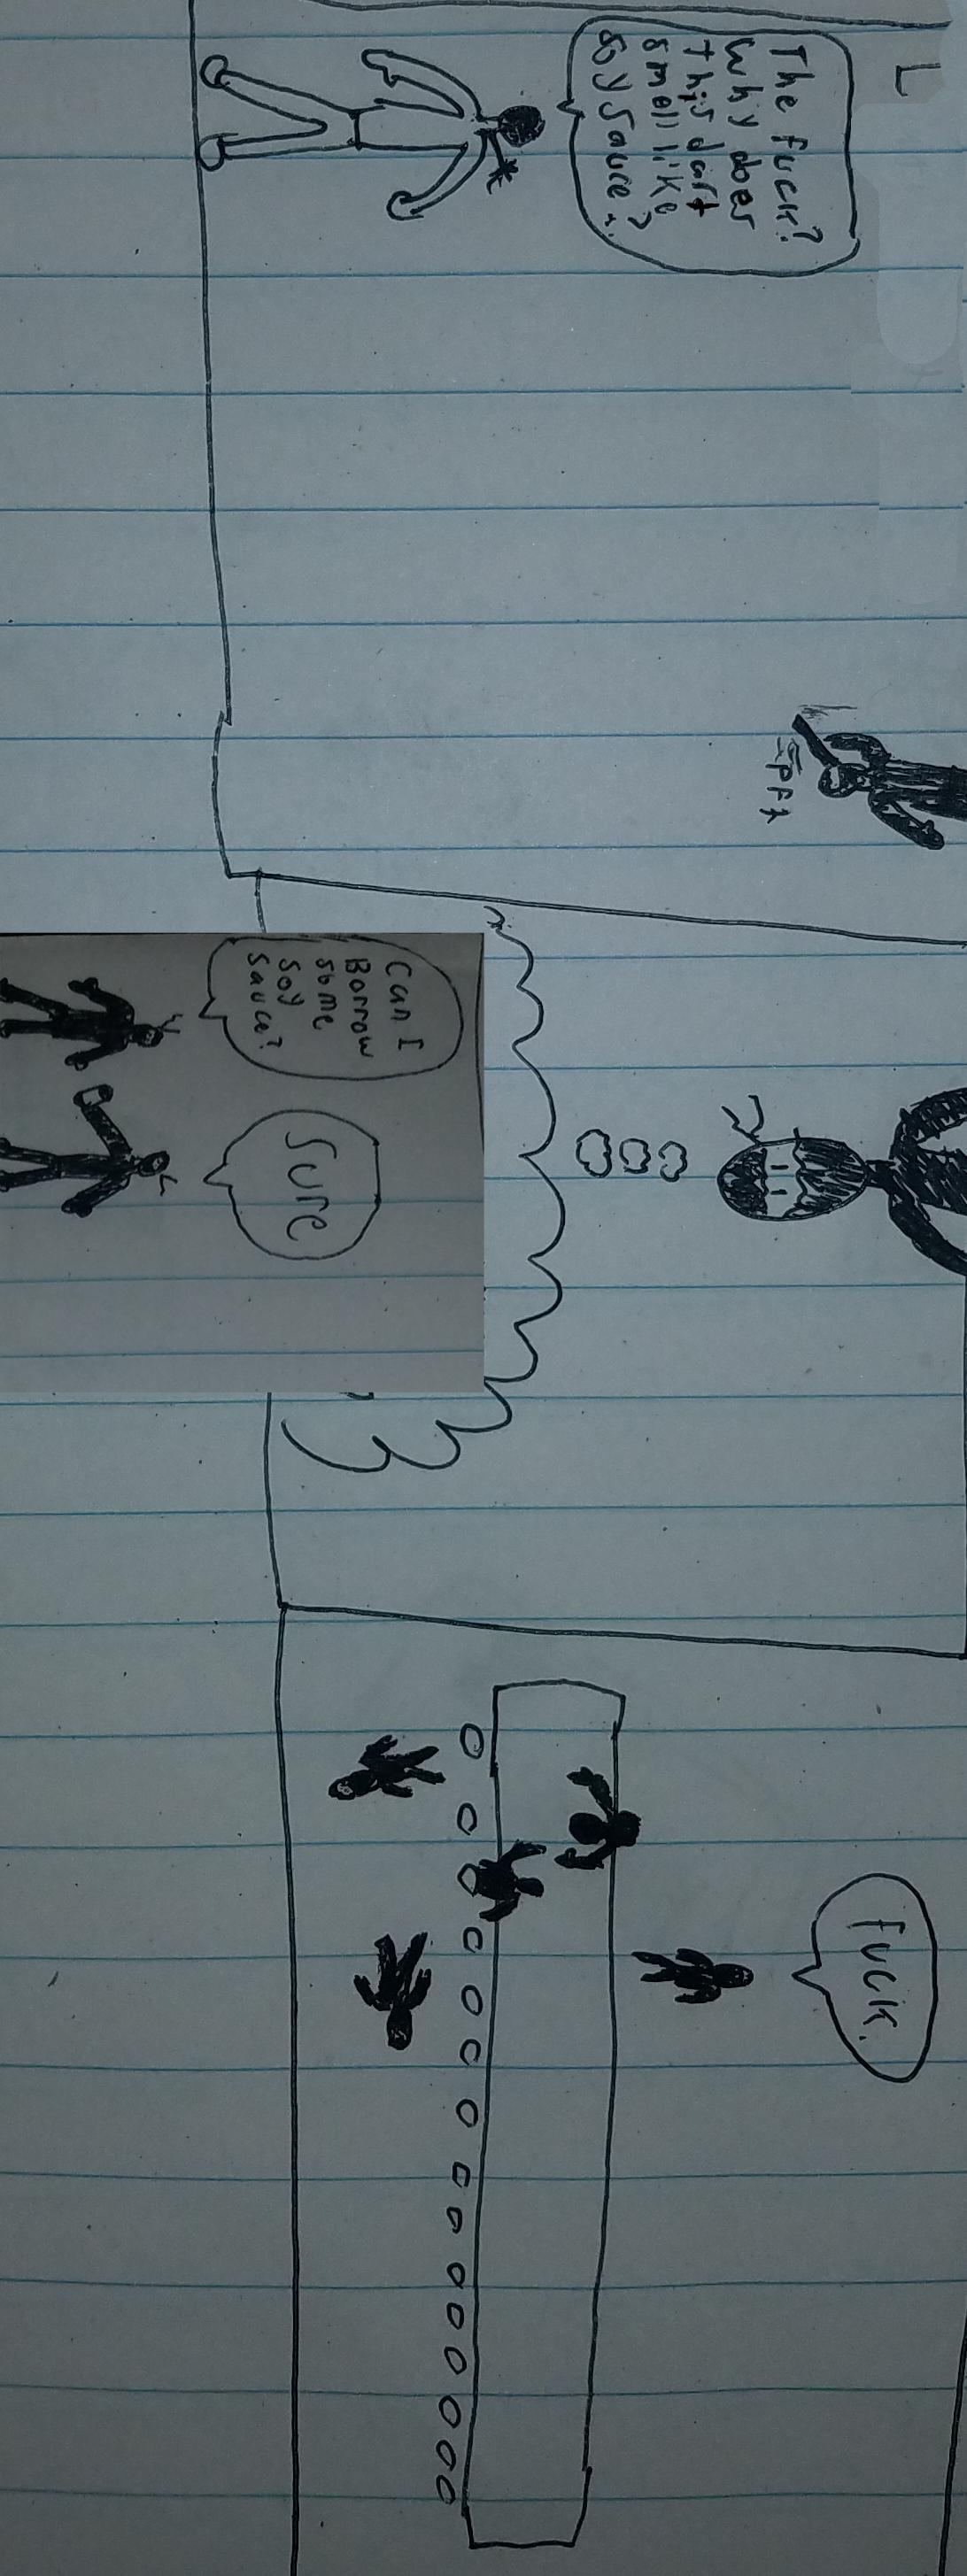 The fuck?
Why does
this dart
smell like
soy sauce?
Can I
Borrow
some
soy
sauce?
Sure
Fuck.